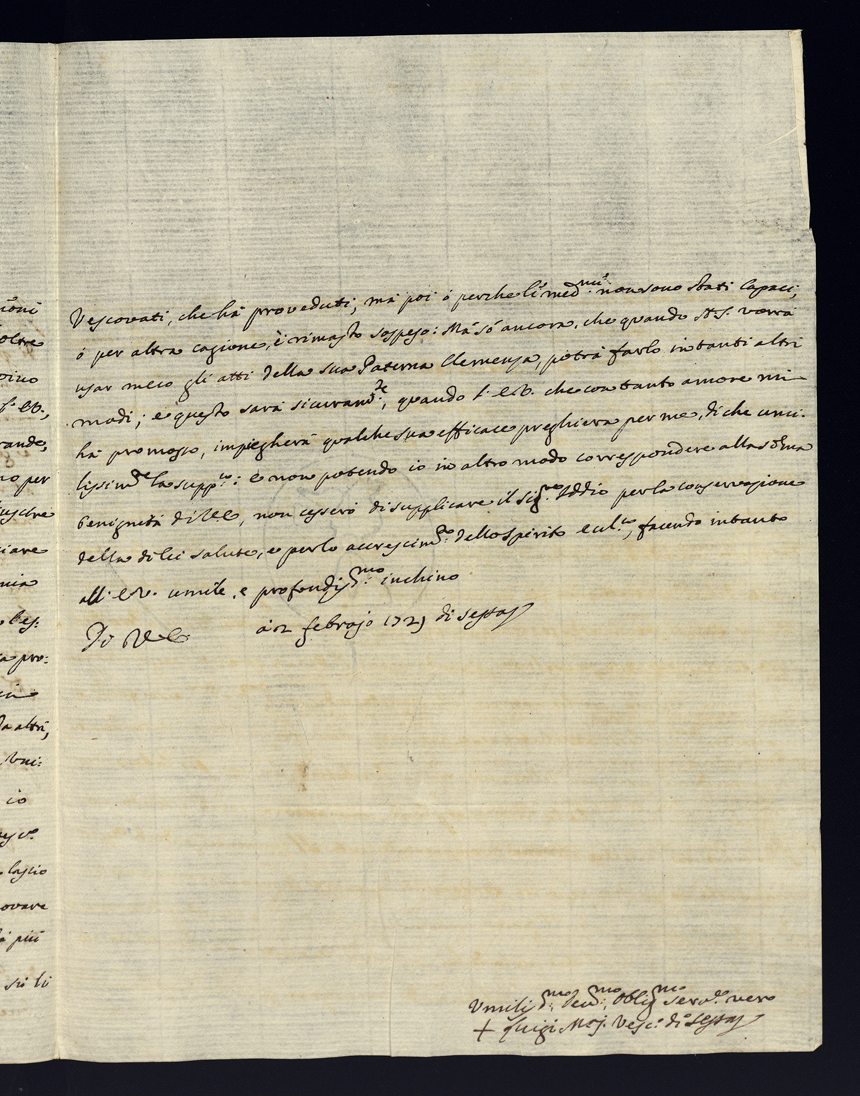 Vescovati, che hà proveduti, mà poi ò perche li med.mi non sono stati capaci,
ò per altra cagione, è rimasto sospeso: Mà sò ancora, che quando S.S. vorrà
usar meco gli atti della sua Paterna Clemenza, potrà farlo in tanti altri
modi; e questo sarà sicuram.te, quando l'E.V. che con tanto amore mi
hà promosso, impiegherà qualche sua efficace preghiera per me, di che umi-
lissim.te la supp.co: e non potendo io in altro modo correspondere alla som̃a
benignità di V.E., non cesserò di supplicare il sig.re Iddio per la conservazione
della di lei salute, e per lo accrescim.to dello spirito, facendo intanto
all'E.V. umile, e profondiss.mo inchino
Di V.E. à 12 febrajo 1729 di
Umiliss.mo Dev.mo Oblig.mo Serv.re vero
+ Luigi Vesc.o di
ioni
oltre
l'E.V.,
rando,
no per
iare
nia
bes:
a pro:
a altri,
io
lascio
ovare
à più
sù li